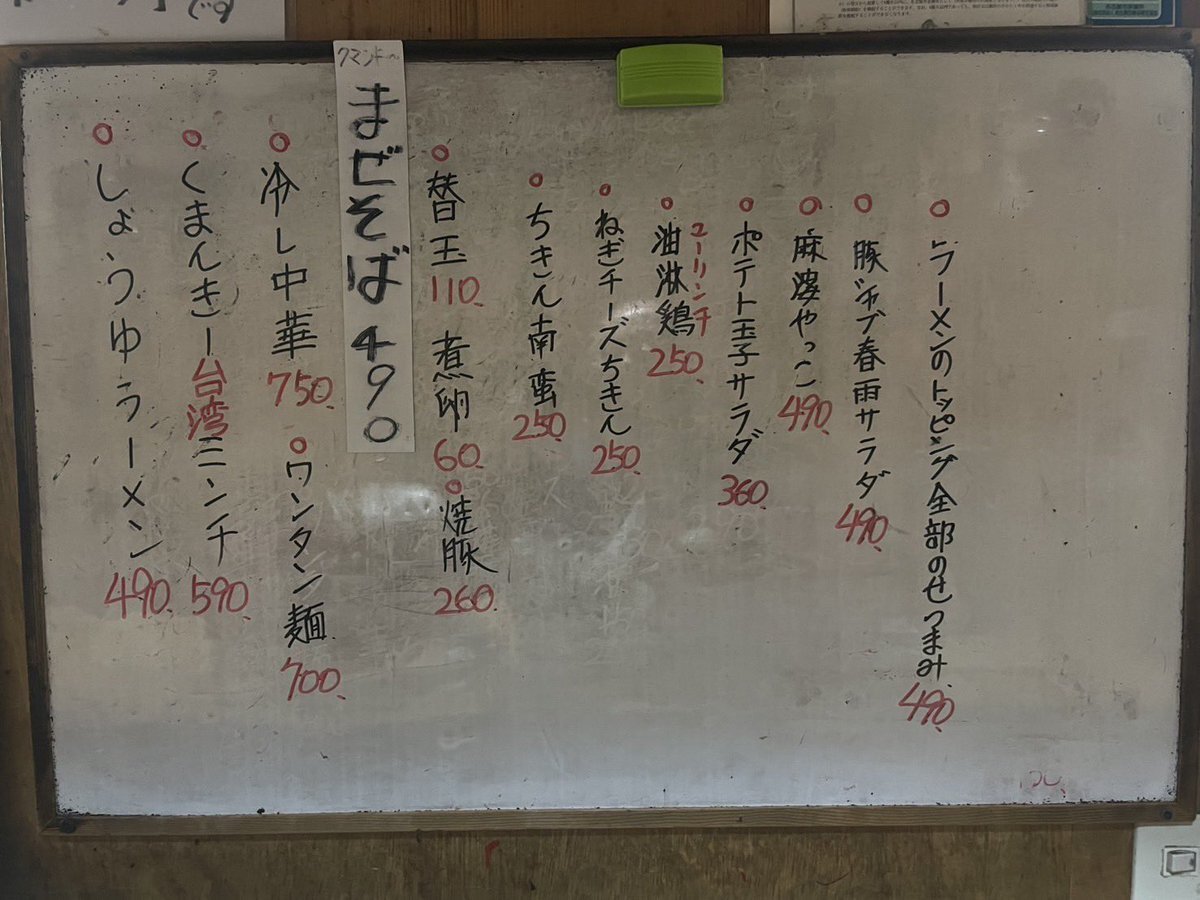 です
ラーメンのトッピング全部のせつまみ 490
豚シャブ春雨サラダ 490
麻婆やっこ 490
ポテト玉子サラダ 360
ユーリンチ
油淋鶏 250
ねぎチーズちきん 250
ちきん南蛮 250
替玉 110 煮卵 60 焼豚 260
まぜそば 490
冷し中華 750 ワンタン麺 700
くまんきー台湾ミンチ 590
しょうゆラーメン 490